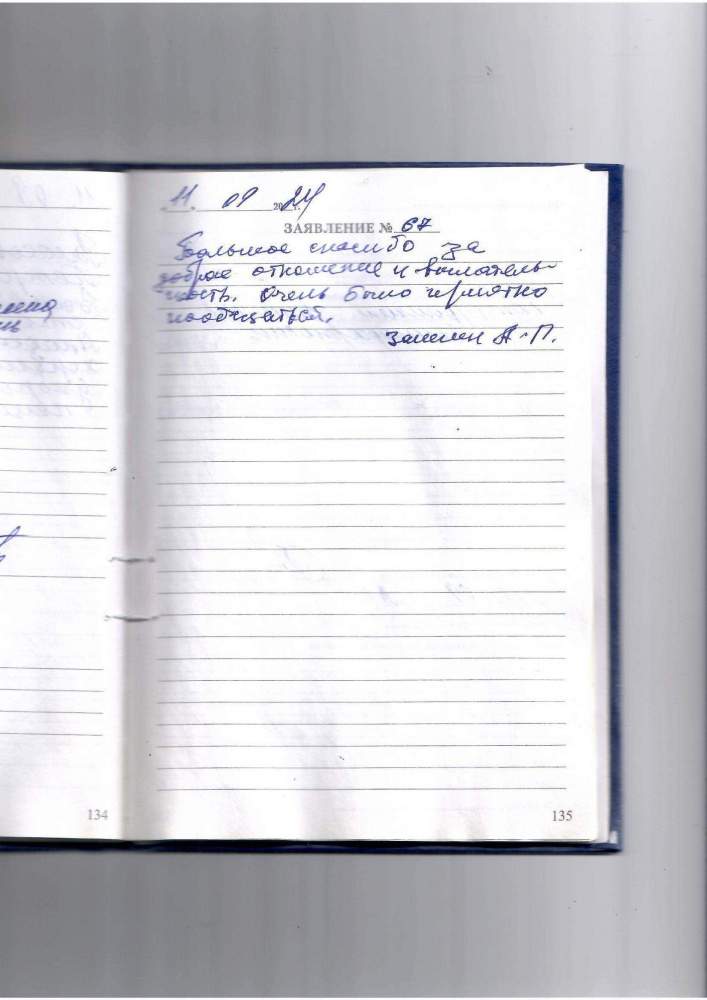 11. 09 2024 г.
ЗАЯВЛЕНИЕ № 67
Большое спасибо за
доброе отношение и внимательность.
ность. Очень было приятно
пообщаться.
А. П.
134
135